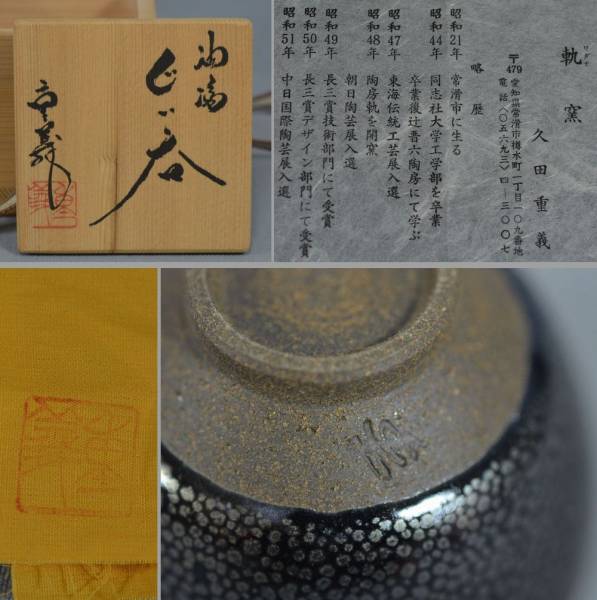 油滴
ぐい呑
重義
軌窯
わだち
久田重義
〒479 愛知県常滑市樽水町一丁目一〇九番地
電話〈〇五六九三〉四―三〇〇七
略歴
昭和21年 常滑市に生る
昭和44年 同志社大学工学部を卒業
卒業後辻晋六陶房にて学ぶ
昭和47年 東海伝統工芸展入選
昭和48年 陶房軌を開窯
朝日陶芸展入選
昭和49年 長三賞技術部門にて受賞
昭和50年 長三賞デザイン部門にて受賞
昭和51年 中日国際陶芸展入選